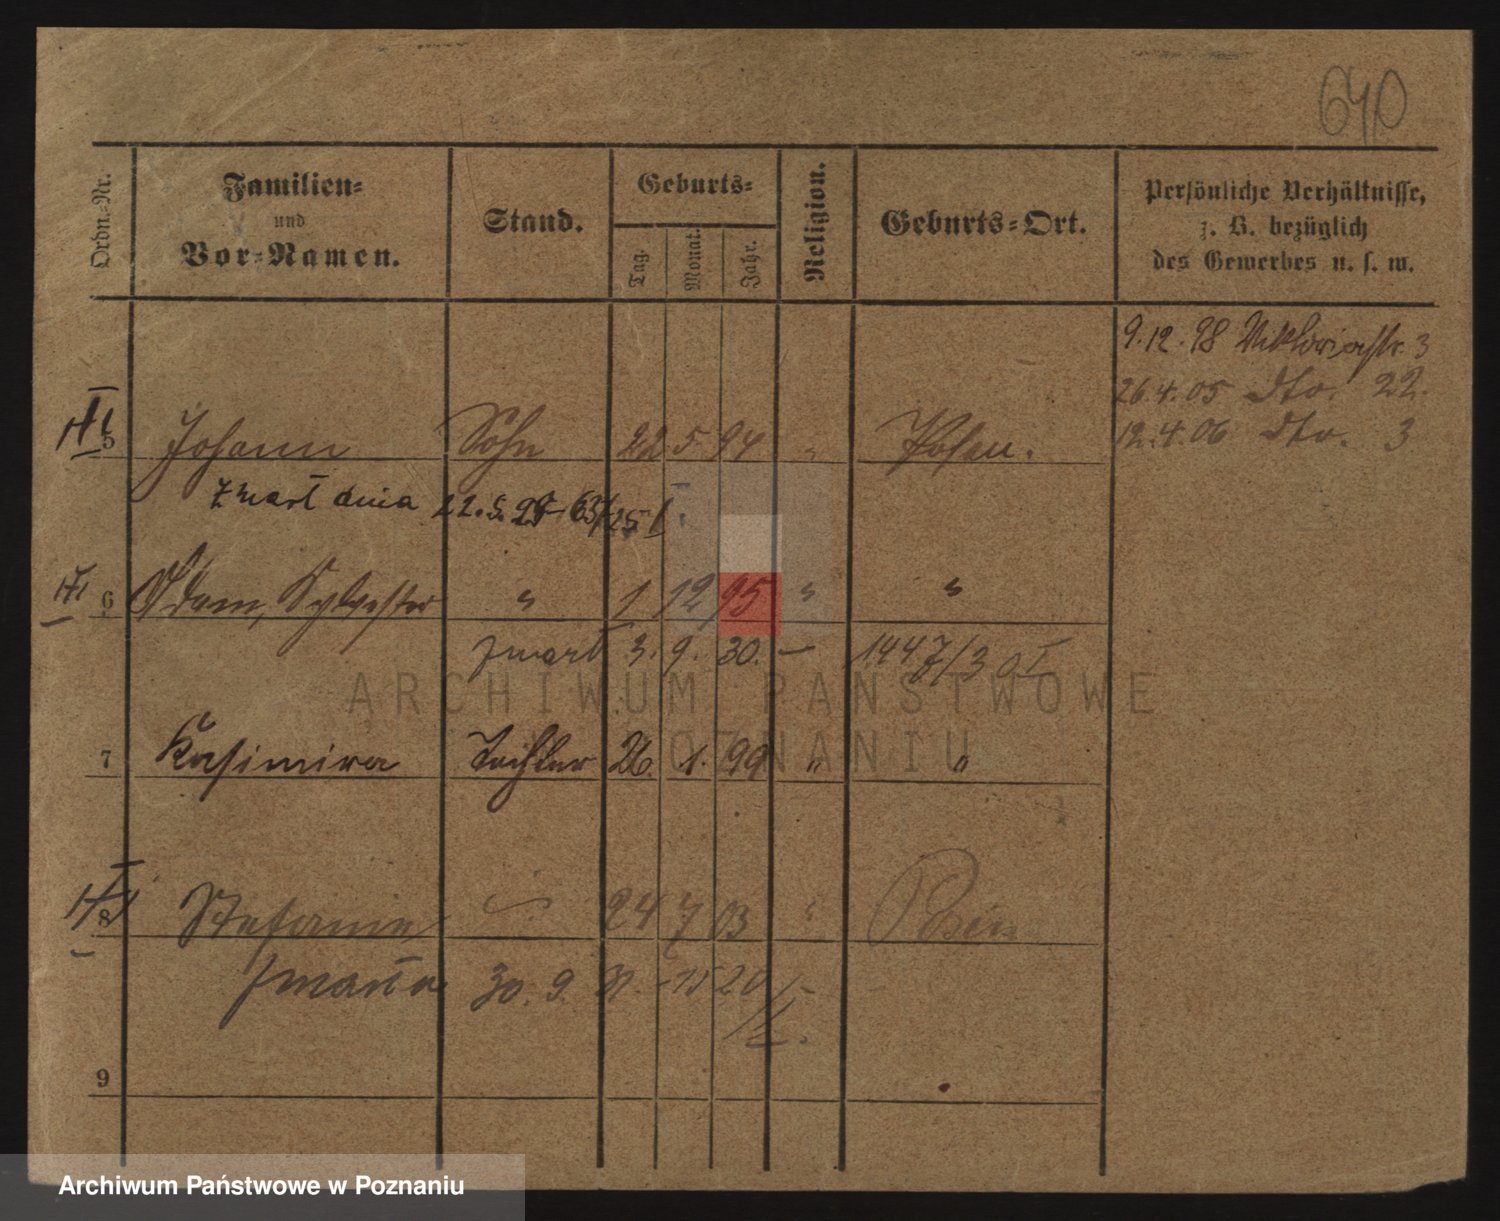 640
Ordn.-Nr.
Familien-
und
Vor-Namen.
Stand.
Geburts-
Tag.
Monat.
Jahr.
Religion.
Geburts-Ort.
Persönliche Verhältnisse,
z. B. bezüglich
des Gewerbes u. s. w.
9.12.98 Viktoriastr. 3
26.4.05 dto. 22.
12.4.06 dto. 3
5 Johann Sohn 22 5 94 " Posen.
zmarł dnia 22.5.25
6 Adam, Sylvester " 1 12 95 " "
zmarł 3. 9. 30. – 1447/30 I
ARCHIWUM PAŃSTWOWE
W POZNANIU
7 Kasimira Tochter 26. 1. 99 " "
8 Stefanie " 24 7 03 " Posen
zmarła 30. 9.
9
Archiwum Państwowe w Poznaniu